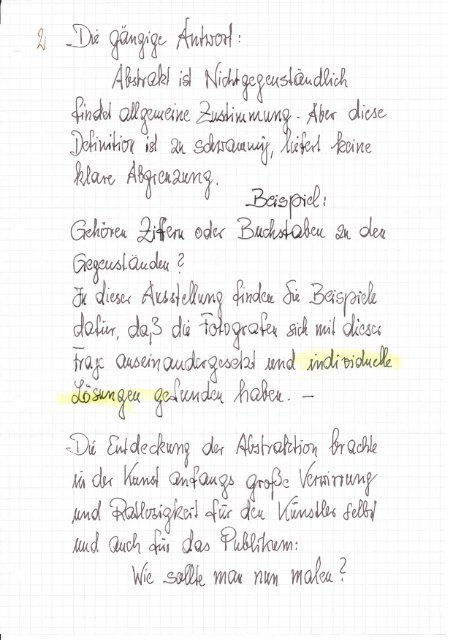 2 Die gängige Antwort:
Abstrakt ist Nichtgegenständlich
findet allgemeine Zustimmung. Aber diese
Definition ist zu schwammig, liefert keine
klare Abgrenzung.
Beispiel:
Gehören Ziffern oder Buchstaben zu den
Gegenständen?
In dieser Ausstellung finden Sie Beispiele
dafür, daß die Fotografen sich mit dieser
Frage auseinandergesetzt und individuelle
Lösungen gefunden haben. –
Die Entdeckung der Abstraktion brachte
in der Kunst anfangs große Verwirrung
und Ratlosigkeit für den Künstler selbst
und auch für das Publikum:
Wie sollte man nun malen?